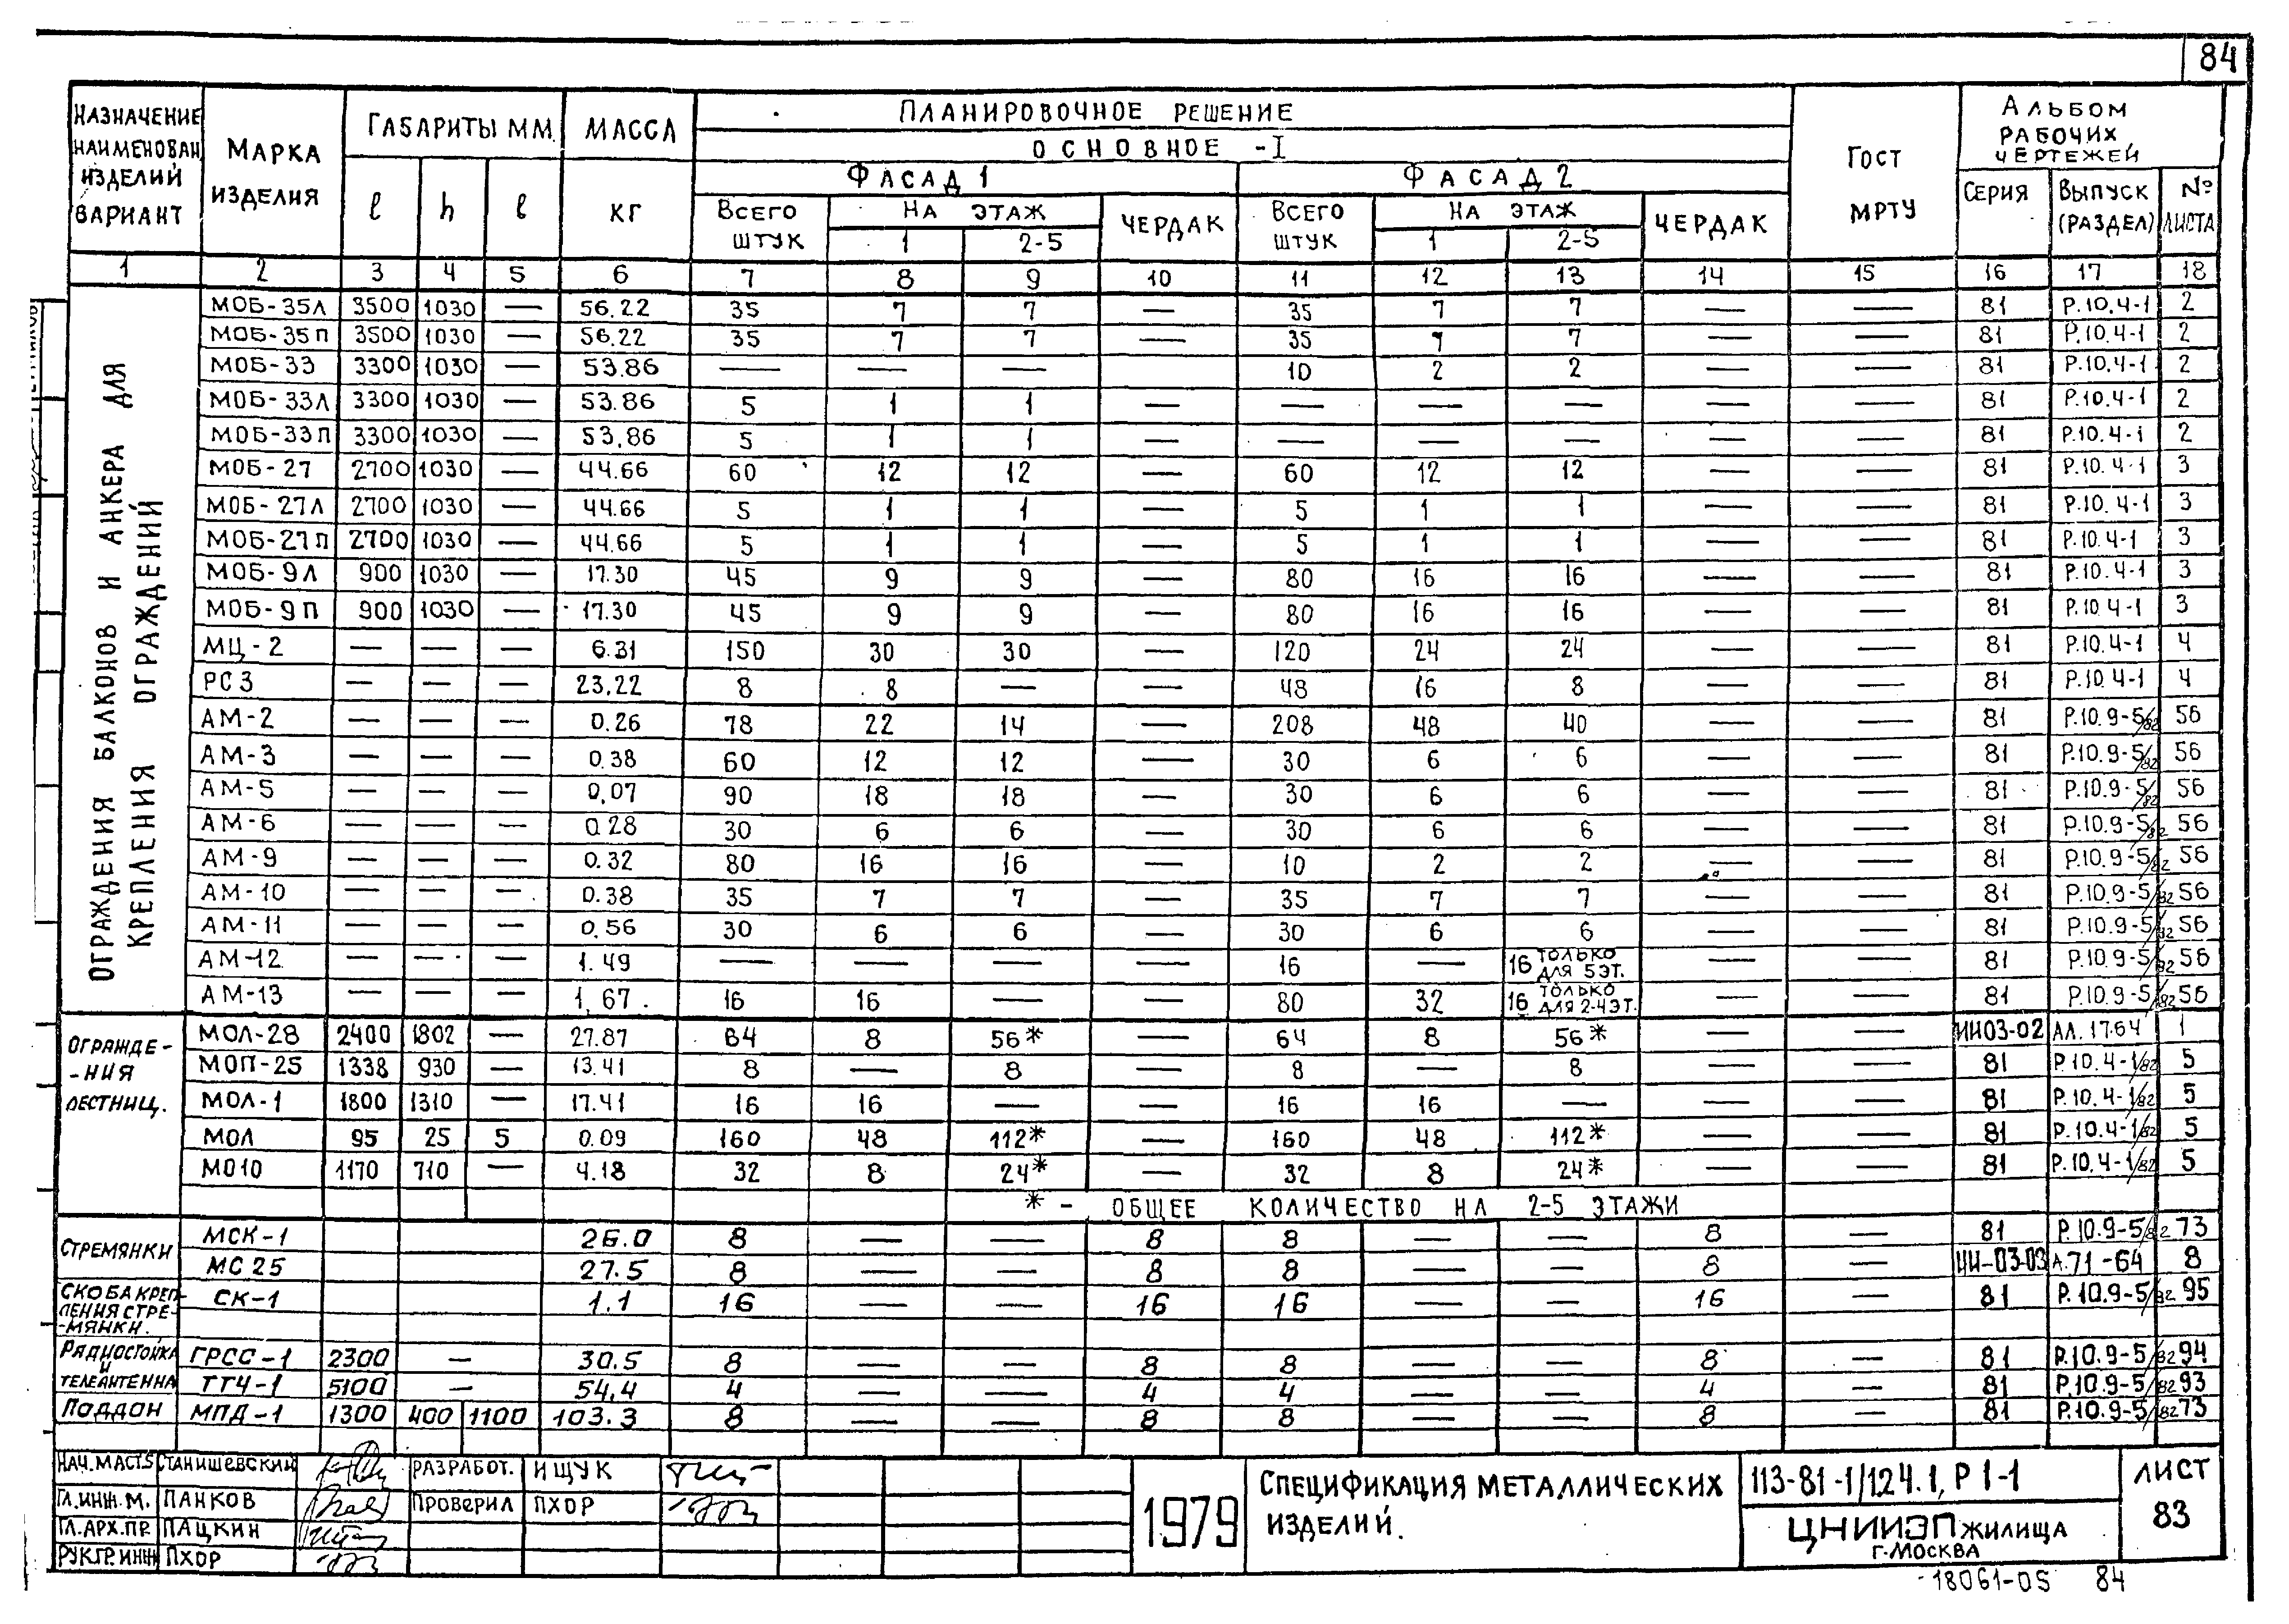 84
НАЗНАЧЕНИЕ НАИМЕНОВАН ИЗДЕЛИЙ ВАРИАНТ | МАРКА ИЗДЕЛИЯ | ГАБАРИТЫ ММ. | МАССА КГ | ПЛАНИРОВОЧНОЕ РЕШЕНИЕ | ГОСТ МРТУ | АЛЬБОМ РАБОЧИХ ЧЕРТЕЖЕЙ
ОСНОВНОЕ - I
ФАСАД 1 | ФАСАД 2
ℓ | h | в | ВСЕГО ШТУК | НА ЭТАЖ | ЧЕРДАК | ВСЕГО ШТУК | НА ЭТАЖ | ЧЕРДАК | СЕРИЯ | ВЫПУСК (РАЗДЕЛ) | № ЛИСТА
1 | 2-5 | 1 | 2-5
1 | 2 | 3 | 4 | 5 | 6 | 7 | 8 | 9 | 10 | 11 | 12 | 13 | 14 | 15 | 16 | 17 | 18
ОГРАЖДЕНИЯ БАЛКОНОВ И АНКЕРА ДЛЯ
КРЕПЛЕНИЯ ОГРАЖДЕНИЙ
МОБ-35Л | 3500 | 1030 | — | 56.22 | 35 | 7 | 7 | — | 35 | 7 | 7 | — | — | 81 | Р.10.4-1 | 2
МОБ-35П | 3500 | 1030 | — | 56.22 | 35 | 7 | 7 | — | 35 | 7 | 7 | — | — | 81 | Р.10.4-1 | 2
МОБ-33 | 3300 | 1030 | — | 53.86 | — | — | — | 10 | 2 | 2 | — | — | 81 | Р.10.4-1 | 2
МОБ-33Л | 3300 | 1030 | — | 53.86 | 5 | 1 | 1 | — | — | — | — | — | — | 81 | Р.10.4-1 | 2
МОБ-33П | 3300 | 1030 | — | 53.86 | 5 | 1 | 1 | — | — | — | — | — | — | 81 | Р.10.4-1 | 2
МОБ-27 | 2700 | 1030 | — | 44.66 | 60 | 12 | 12 | — | 60 | 12 | 12 | — | — | 81 | Р.10.4-1 | 3
МОБ-27Л | 2700 | 1030 | — | 44.66 | 5 | 1 | 1 | — | 5 | 1 | 1 | — | — | 81 | Р.10.4-1 | 3
МОБ-27П | 2700 | 1030 | — | 44.66 | 5 | 1 | 1 | — | 5 | 1 | 1 | — | — | 81 | Р.10.4-1 | 3
МОБ-9Л | 900 | 1030 | — | 17.30 | 45 | 9 | 9 | — | 80 | 16 | 16 | — | — | 81 | Р.10.4-1 | 3
МОБ-9П | 900 | 1030 | — | 17.30 | 45 | 9 | 9 | — | 80 | 16 | 16 | — | — | 81 | Р.10 4-1 | 3
МЦ-2 | — | — | — | 6.31 | 150 | 30 | 30 | — | 120 | 24 | 24 | — | — | 81 | Р.10.4-1 | 4
РС3 | — | — | — | 23.22 | 8 | 8 | — | — | 48 | 16 | 8 | — | — | 81 | Р.10.4-1 | 4
АМ-2 | — | — | — | 0.26 | 78 | 22 | 14 | — | 208 | 48 | 40 | — | — | 81 | Р.10.9-5/82 | 56
АМ-3 | — | — | — | 0.38 | 60 | 12 | 12 | — | 30 | 6 | 6 | — | — | 81 | Р.10.9-5/82 | 56
АМ-5 | — | — | — | 0,07 | 90 | 18 | 18 | — | 30 | 6 | 6 | — | — | 81 | Р.10.9-5/82 | 56
АМ-6 | — | — | — | 0.28 | 30 | 6 | 6 | — | 30 | 6 | 6 | — | — | 81 | Р.10.9-5/82 | 56
АМ-9 | — | — | — | 0.32 | 80 | 16 | 16 | — | 10 | 2 | 2 | — | — | 81 | Р.10.9-5/82 | 56
АМ-10 | — | — | — | 0.38 | 35 | 7 | 7 | — | 35 | 7 | 7 | — | — | 81 | Р.10.9-5/82 | 56
АМ-11 | — | — | — | 0,56 | 30 | 6 | 6 | — | 30 | 6 | 6 | — | — | 81 | Р.10.9-5/82 | 56
АМ-12 | — | — | — | 1.49 | — | — | — | — | 16 | — | 16 ТОЛЬКО ДЛЯ 5 ЭТ. | — | — | 81 | Р.10.9-5/82 | 56
АМ-13 | — | — | — | 1,67. | 16 | 16 | — | — | 80 | 32 | 16 ТОЛЬКО ДЛЯ 2-4 ЭТ. | — | — | 81 | Р.10.9-5/82 | 56
ОГРАЖДЕ-
-НИЯ
ЛЕСТНИЦ.
МОЛ-28 | 2400 | 1802 | — | 27.87 | 64 | 8 | 56* | — | 64 | 8 | 56* | — | — | ИИ03-02 | АЛ. 17.64 | 1
МОП-25 | 1338 | 930 | — | 13.41 | 8 | — | 8 | — | 8 | — | 8 | — | — | 81 | Р.10.4-1/82 | 5
МОЛ-1 | 1800 | 1310 | — | 17.41 | 16 | 16 | — | — | 16 | 16 | — | — | — | 81 | Р.10.4-1/82 | 5
МОЛ | 95 | 25 | 5 | 0.09 | 160 | 48 | 112* | — | 160 | 48 | 112* | — | — | 81 | Р.10.4-1/82 | 5
МО10 | 1170 | 710 | — | 4.18 | 32 | 8 | 24* | — | 32 | 8 | 24* | — | — | 81 | Р.10.4-1/82 | 5
* - ОБЩЕЕ КОЛИЧЕСТВО НА 2-5 ЭТАЖИ
СТРЕМЯНКИ
МСК-1 | 26.0 | 8 | — | — | 8 | 8 | — | — | 8 | — | 81 | Р.10.9-5/82 | 73
МС 25 | 27.5 | 8 | — | — | 8 | 8 | — | — | 8 | — | ИИ-03-03 | А.71-64 | 8
СКОБА КРЕП-
ЛЕНИЯ СТРЕ-
-МЯНКИ.
СК-1 | 1.1 | 16 | — | — | 16 | 16 | — | — | 16 | — | 81 | Р.10.9-5/82 | 95
РАДИОСТОЙКА
И
ТЕЛЕАНТЕННА
ГРСС-1 | 2300 | — | 30.5 | 8 | — | — | 8 | 8 | — | — | 8 | — | 81 | Р.10.9-5/82 | 94
ТТЧ-1 | 5100 | — | 54,4 | 4 | — | — | 4 | 4 | — | — | 4 | — | 81 | Р.10.9-5/82 | 93
ПОДДОН | МПД-1 | 1300 | 400 | 1100 | 103.3 | 8 | — | — | 8 | 8 | — | — | 8 | — | 81 | Р.10.9-5/82 | 73
НАЧ.МАСТ5 | СТАНИШЕВСКИЙ | РАЗРАБОТ. | ИЩУК
ГЛ.ИНЖ.М. | ПАНКОВ | ПРОВЕРИЛ | ПХОР
ГЛ.АРХ.ПР. | ПАЦКИН
РУК.ГР.ИНЖ | ПХОР
1979
СПЕЦИФИКАЦИЯ МЕТАЛЛИЧЕСКИХ
ИЗДЕЛИЙ.
113-81-1/124.1, Р 1-1
ЦНИИЭП ЖИЛИЩА
Г. МОСКВА
ЛИСТ
83
18061-05 84